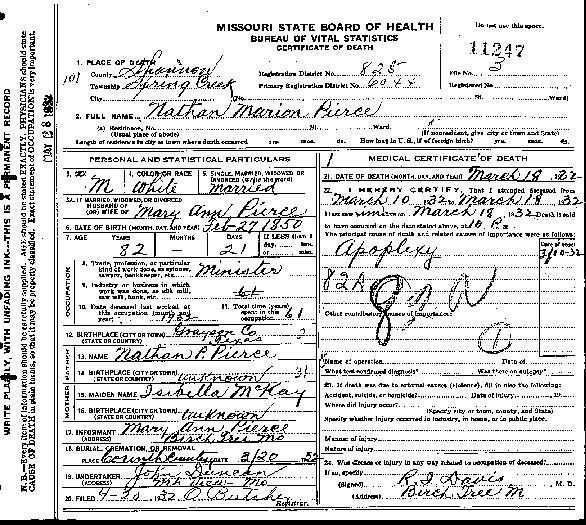 MISSOURI STATE BOARD OF HEALTH
BUREAU OF VITAL STATISTICS
CERTIFICATE OF DEATH
Do not use this space.
11247
1. PLACE OF DEATH
County Shannon Registration District No. 825 File No. 3
Township Spring Creek Primary Registration District No. 6044 Registered No.
City (No. St. Ward)
2. FULL NAME Nathan Marion Pierce
(a) Residence, No. St. Ward.
(Usual place of abode) (If nonresident, give city or town and State)
Length of residence in city or town where death occurred yrs. mos. ds. How long in U. S., if of foreign birth? yrs. mos. ds.
PERSONAL AND STATISTICAL PARTICULARS
3. SEX M
4. COLOR OR RACE White
5. SINGLE, MARRIED, WIDOWED OR DIVORCED (write the word) married
5A. IF MARRIED, WIDOWED, OR DIVORCED
HUSBAND OF (OR) WIFE OF Mary Ann Pierce
6. DATE OF BIRTH (MONTH, DAY, AND YEAR) Feb-27 1850
7. AGE YEARS 82 MONTHS - DAYS 21 If LESS than 1 day, hrs. or min.
OCCUPATION
8. Trade, profession, or particular kind of work done, as spinner, sawyer, bookkeeper, etc. Minister
9. Industry or business in which work was done, as silk mill, saw mill, bank, etc.
10. Date deceased last worked at this occupation (month and year) 1932
11. Total time (years) spent in this occupation 61
12. BIRTHPLACE (CITY OR TOWN) Grayson Co
(STATE OR COUNTRY) Texas
FATHER
13. NAME Nathan P. Pierce
14. BIRTHPLACE (CITY OR TOWN)
(STATE OR COUNTRY) unknown
MOTHER
15. MAIDEN NAME Isabella McKay
16. BIRTHPLACE (CITY OR TOWN)
(STATE OR COUNTRY) unknown
17. INFORMANT Mary Ann Pierce
(ADDRESS) Birch Tree Mo
18. BURIAL, CREMATION, OR REMOVAL
PLACE DATE 3/20 32
19. UNDERTAKER John Duncan
(ADDRESS) Mtn View Mo
20. FILED 4-30 32
Registrar.
MEDICAL CERTIFICATE OF DEATH
21. DATE OF DEATH (MONTH, DAY, AND YEAR) March 18 1932
22. I HEREBY CERTIFY, That I attended deceased from
March 10 32, to March 18 32
I last saw him alive on March 18 1932 Death is said
to have occurred on the date stated above, at 10 P. m.
The principal cause of death and related causes of importance were as follows:
Date of onset
Apoplexy 3/10-32
82A
Other contributory causes of importance:
1
Name of operation Date of
What test confirmed diagnosis? Was there an autopsy?
23. If death was due to external causes (violence), fill in also the following:
Accident, suicide, or homicide? Date of injury 19
Where did injury occur?
(Specify city or town, county, and State)
Specify whether injury occurred in industry, in home, or in public place.
Manner of injury
Nature of injury
24. Was disease or injury in any way related to occupation of deceased?
If so, specify
(Signed) R. I. Davis M. D.
(Address) Birch Tree M
WRITE PLAINLY, WITH UNFADING INK—THIS IS A PERMANENT RECORD
N. B.—Every item of information should be carefully supplied. AGE should be stated EXACTLY. PHYSICIANS should state
CAUSE OF DEATH in plain terms, so that it may be properly classified. Exact statement of OCCUPATION is very important.